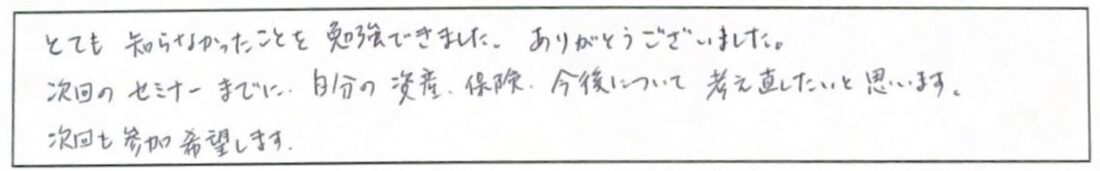 とても 知らなかったことを 勉強できました。ありがとうございました。
次回の セミナーまでに、自分の 資産、保険、今後について 考え直したいと思います。
次回も参加希望します。